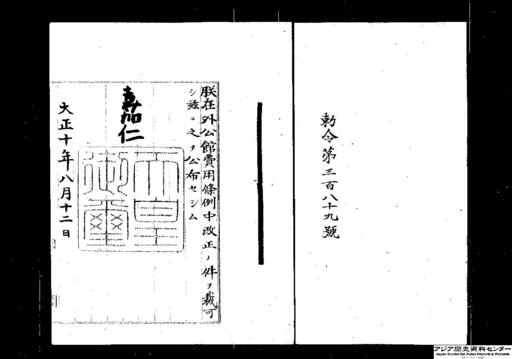 勅令第三百八十九號
朕在外公館費用條例中改正ノ件ヲ裁可
シ茲ニ之ヲ公布セシム
嘉仁
天皇
御璽
大正十年八月十二日
アジア歴史資料センター
Japan Center for Asian Historical Records